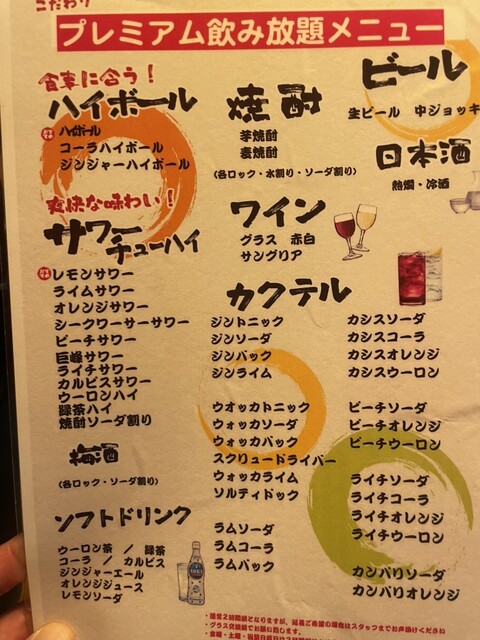 こだわり
プレミアム飲み放題メニュー
食事に合う！
ハイボール
ハイボール
コーラハイボール
ジンジャーハイボール
爽快な味わい！
サワー
チューハイ
レモンサワー
ライムサワー
オレンジサワー
シークワーサーサワー
ピーチサワー
巨峰サワー
ライチサワー
カルピスサワー
ウーロンハイ
緑茶ハイ
焼酎ソーダ割り
梅酒
（各ロック・ソーダ割り）
ソフトドリンク
ウーロン茶 ／ 緑茶
コーラ ／ カルピス
ジンジャーエール
オレンジジュース
レモンソーダ
焼酎
芋焼酎
麦焼酎
（各ロック・水割り・ソーダ割り）
ワイン
グラス 赤白
サングリア
ビール
生ビール 中ジョッキ
日本酒
熱燗・冷酒
カクテル
ジントニック
ジンソーダ
ジンバック
ジンライム
ウオッカトニック
ウォッカソーダ
ウォッカバック
スクリュードライバー
ウォッカライム
ソルティドック
ラムソーダ
ラムコーラ
ラムバック
カシスソーダ
カシスコーラ
カシスオレンジ
カシスウーロン
ピーチソーダ
ピーチオレンジ
ピーチウーロン
ライチソーダ
ライチコーラ
ライチオレンジ
ライチウーロン
カンパリソーダ
カンパリオレンジ
・グラス交換制でお願い致します。